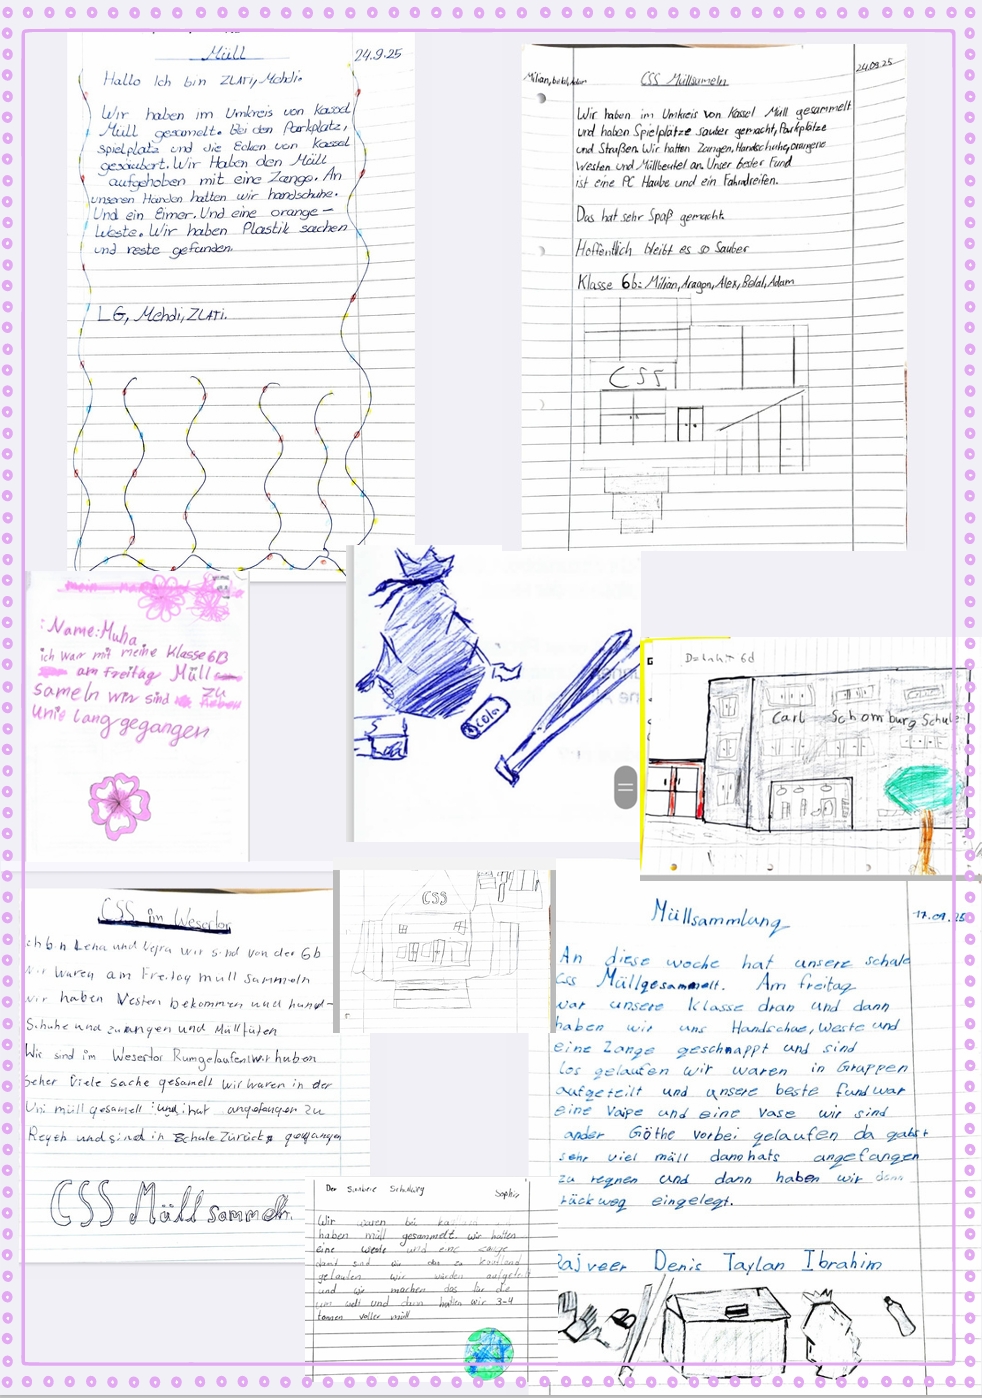 Müll
24.9.25
Hallo Ich bin ZLATI, Mehdi.
Wir haben im Umkreis von Kassel
Müll gesamelt. Bei den Parkplatz,
spielplatz und die Ecken von Kassel
gesäubert. Wir Haben den Müll
aufgehoben mit eine Zange. An
unseren Händen hatten wir handschuhe.
Und ein Eimer. Und eine orange-
Weste. Wir haben Plastik sachen
und reste gefunden.
LG, Mehdi, ZLATI.
Milian, belal, Adam
CSS Müllsameln
24.09.25
Wir haben im Umkreis von Kassel Müll gesammelt
und haben Spielplätze sauber gemacht, Parkplätze
und Straßen. Wir hatten Zangen, Handschuhe, orangene
Westen und Müllbeutel an. Unser bester Fund
ist eine PC Haube und ein Fahrradreifen.
Das hat sehr Spaß gemacht
Hoffentlich bleibt es so Sauber
Klasse 6b: Milian, dragon, Alex, Belal, Adam
CSS
: Name: Muha
ich war mit meine Klasse 6B
am freitag Müll
sameln wir sind zu
unie lang gegangen
cola
6d
Carl Schomburg Schule
CSS im Wesertor
ich bin Lena und wir sind von der 6b
Wir waren am Freitag müll sammeln
wir haben Westen bekommen und hand-
Schuhe und zwangen und Mülltüten
Wir sind im Wesertor Rumgelaufen wir haben
Seher Viele sache gesamelt wir waren in der
Uni müll gesamelt und ihat angefangen zu
und sind in Schule Zurück gegangen
CSS Müll sammeln.
CSS
Müllsammlung
17.09.25
An diese woche hat unsere schule
Css Müllgesammelt. Am freitag
war unsere Klasse dran und dann
haben wir uns Handschue, Weste und
eine Zange geschnappt und sind
los gelaufen wir waren in Gruppen
aufgeteilt und unsere beste fund war
eine Vaipe und eine Vase wir sind
ander Göthe vorbei gelaufen da gabst
sehr viel müll danahats angefangen
zu regnen und dann haben wir denn
rückweg eingelegt.
Rajveer Denis Taylan Ibrahim
Der Saubere Schulweg
Sophia
Wir waren bei
haben müll gesammelt. wir hatten
eine weste und eine zange
dann sind wir den zu kaufland
gelaufen wir wurden aufgeteilt
und wir machen das für die
um welt und dann hatten wir 3-4
tonnen voller müll